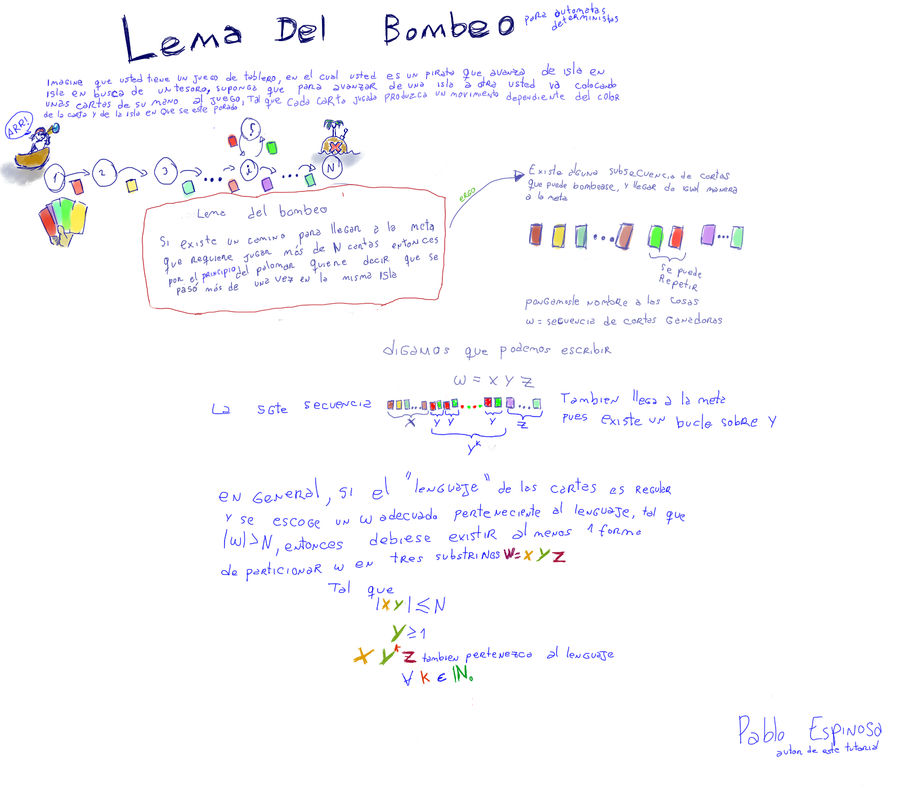 Lema Del Bombeo
para automatas
deterministas
Imagine que usted tiene un juego de tablero, en el cual usted es un pirata que avanza de isla en
isla en busca de un tesoro, suponga que para avanzar de una isla a otra usted va colocando
unas cartas de su mano al juego, Tal que cada carta jugada produzca un movimiento dependiente del color
de la carta y de la isla en que se este parado
ARR!
1 2 3 i N
j
Lema del bombeo
Si existe un camino para llegar a la meta
que requiere jugar más de N cartas entonces
por el principio del palomar quiere decir que se
pasó más de una vez en la misma isla
ERGO
Existe alguna subsecuencia de cartas
que puede bombearse, y llegar de igual manera
a la meta
...
...
se puede
Repetir
pongamosle nombre a las cosas
w = secuencia de cartas Ganadoras
digamos que podemos escribir
w = x y z
La sgte secuencia
x y y y z
y^k
Tambien llega a la meta
pues existe un bucle sobre y
en General, si el "lenguaje" de las cartas es regular
y se escoge un w adecuado perteneciente al lenguaje, tal que
|w|>N, entonces debiese existir al menos 1 forma
de particionar w en tres substrings w=x y z
Tal que
|xy| ≤ N
y ≥ 1
x y^k z tambien pertenezca al lenguaje
∀ k ∈ ℕ₀
Pablo Espinosa
autor de este tutorial